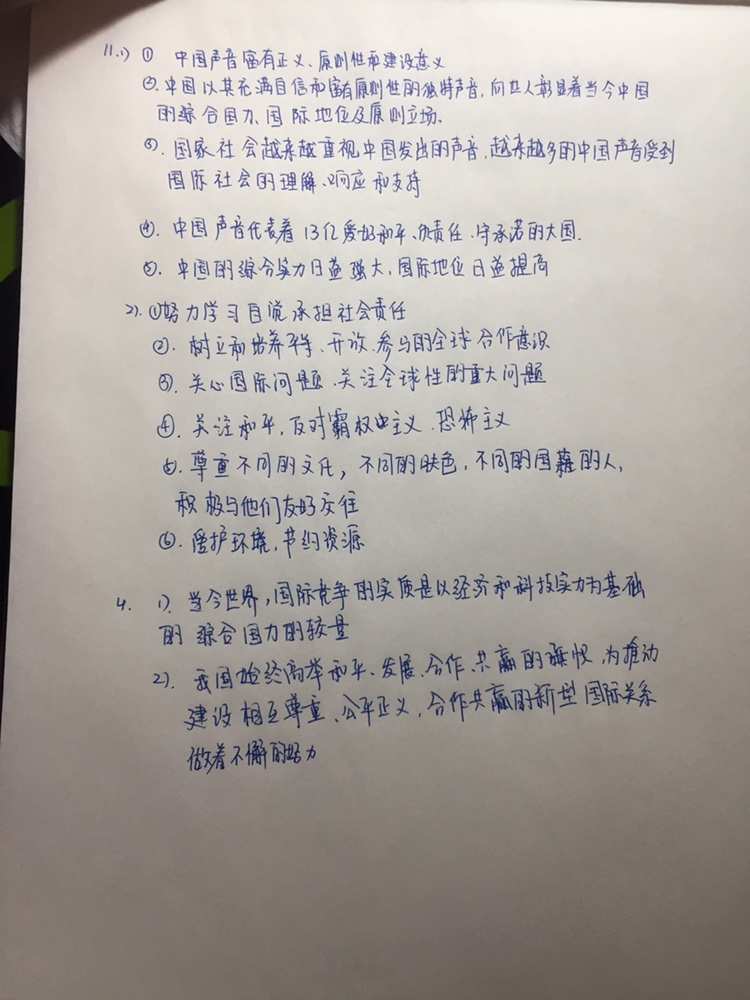 11.1) ① 中国声音富有正义、原则性和建设意义
②.中国以其充满自信和富有原则性的独特声音,向世人彰显着当今中国
的综合国力、国际地位及原则立场.
③.国家社会越来越重视中国发出的声音,越来越多的中国声音受到
国际社会的理解、响应和支持
④.中国声音代表着13亿爱好和平、负责任、守承诺的大国.
⑤.中国的综合实力日益强大,国际地位日益提高
2).①努力学习自觉承担社会责任
②.树立和培养平等、开放、参与的全球合作意识
③.关心国际问题、关注全球性的重大问题
④.关注和平,反对霸权主义、恐怖主义
⑤.尊重不同的文化,不同的肤色,不同的国籍的人,
积极与他们友好交往
⑥.爱护环境,节约资源
4. 1).当今世界,国际竞争的实质是以经济和科技实力为基础
的综合国力的较量
2).我国始终高举和平、发展、合作、共赢的旗帜,为推动
建设相互尊重、公平正义,合作共赢的新型国际关系
做着不懈的努力